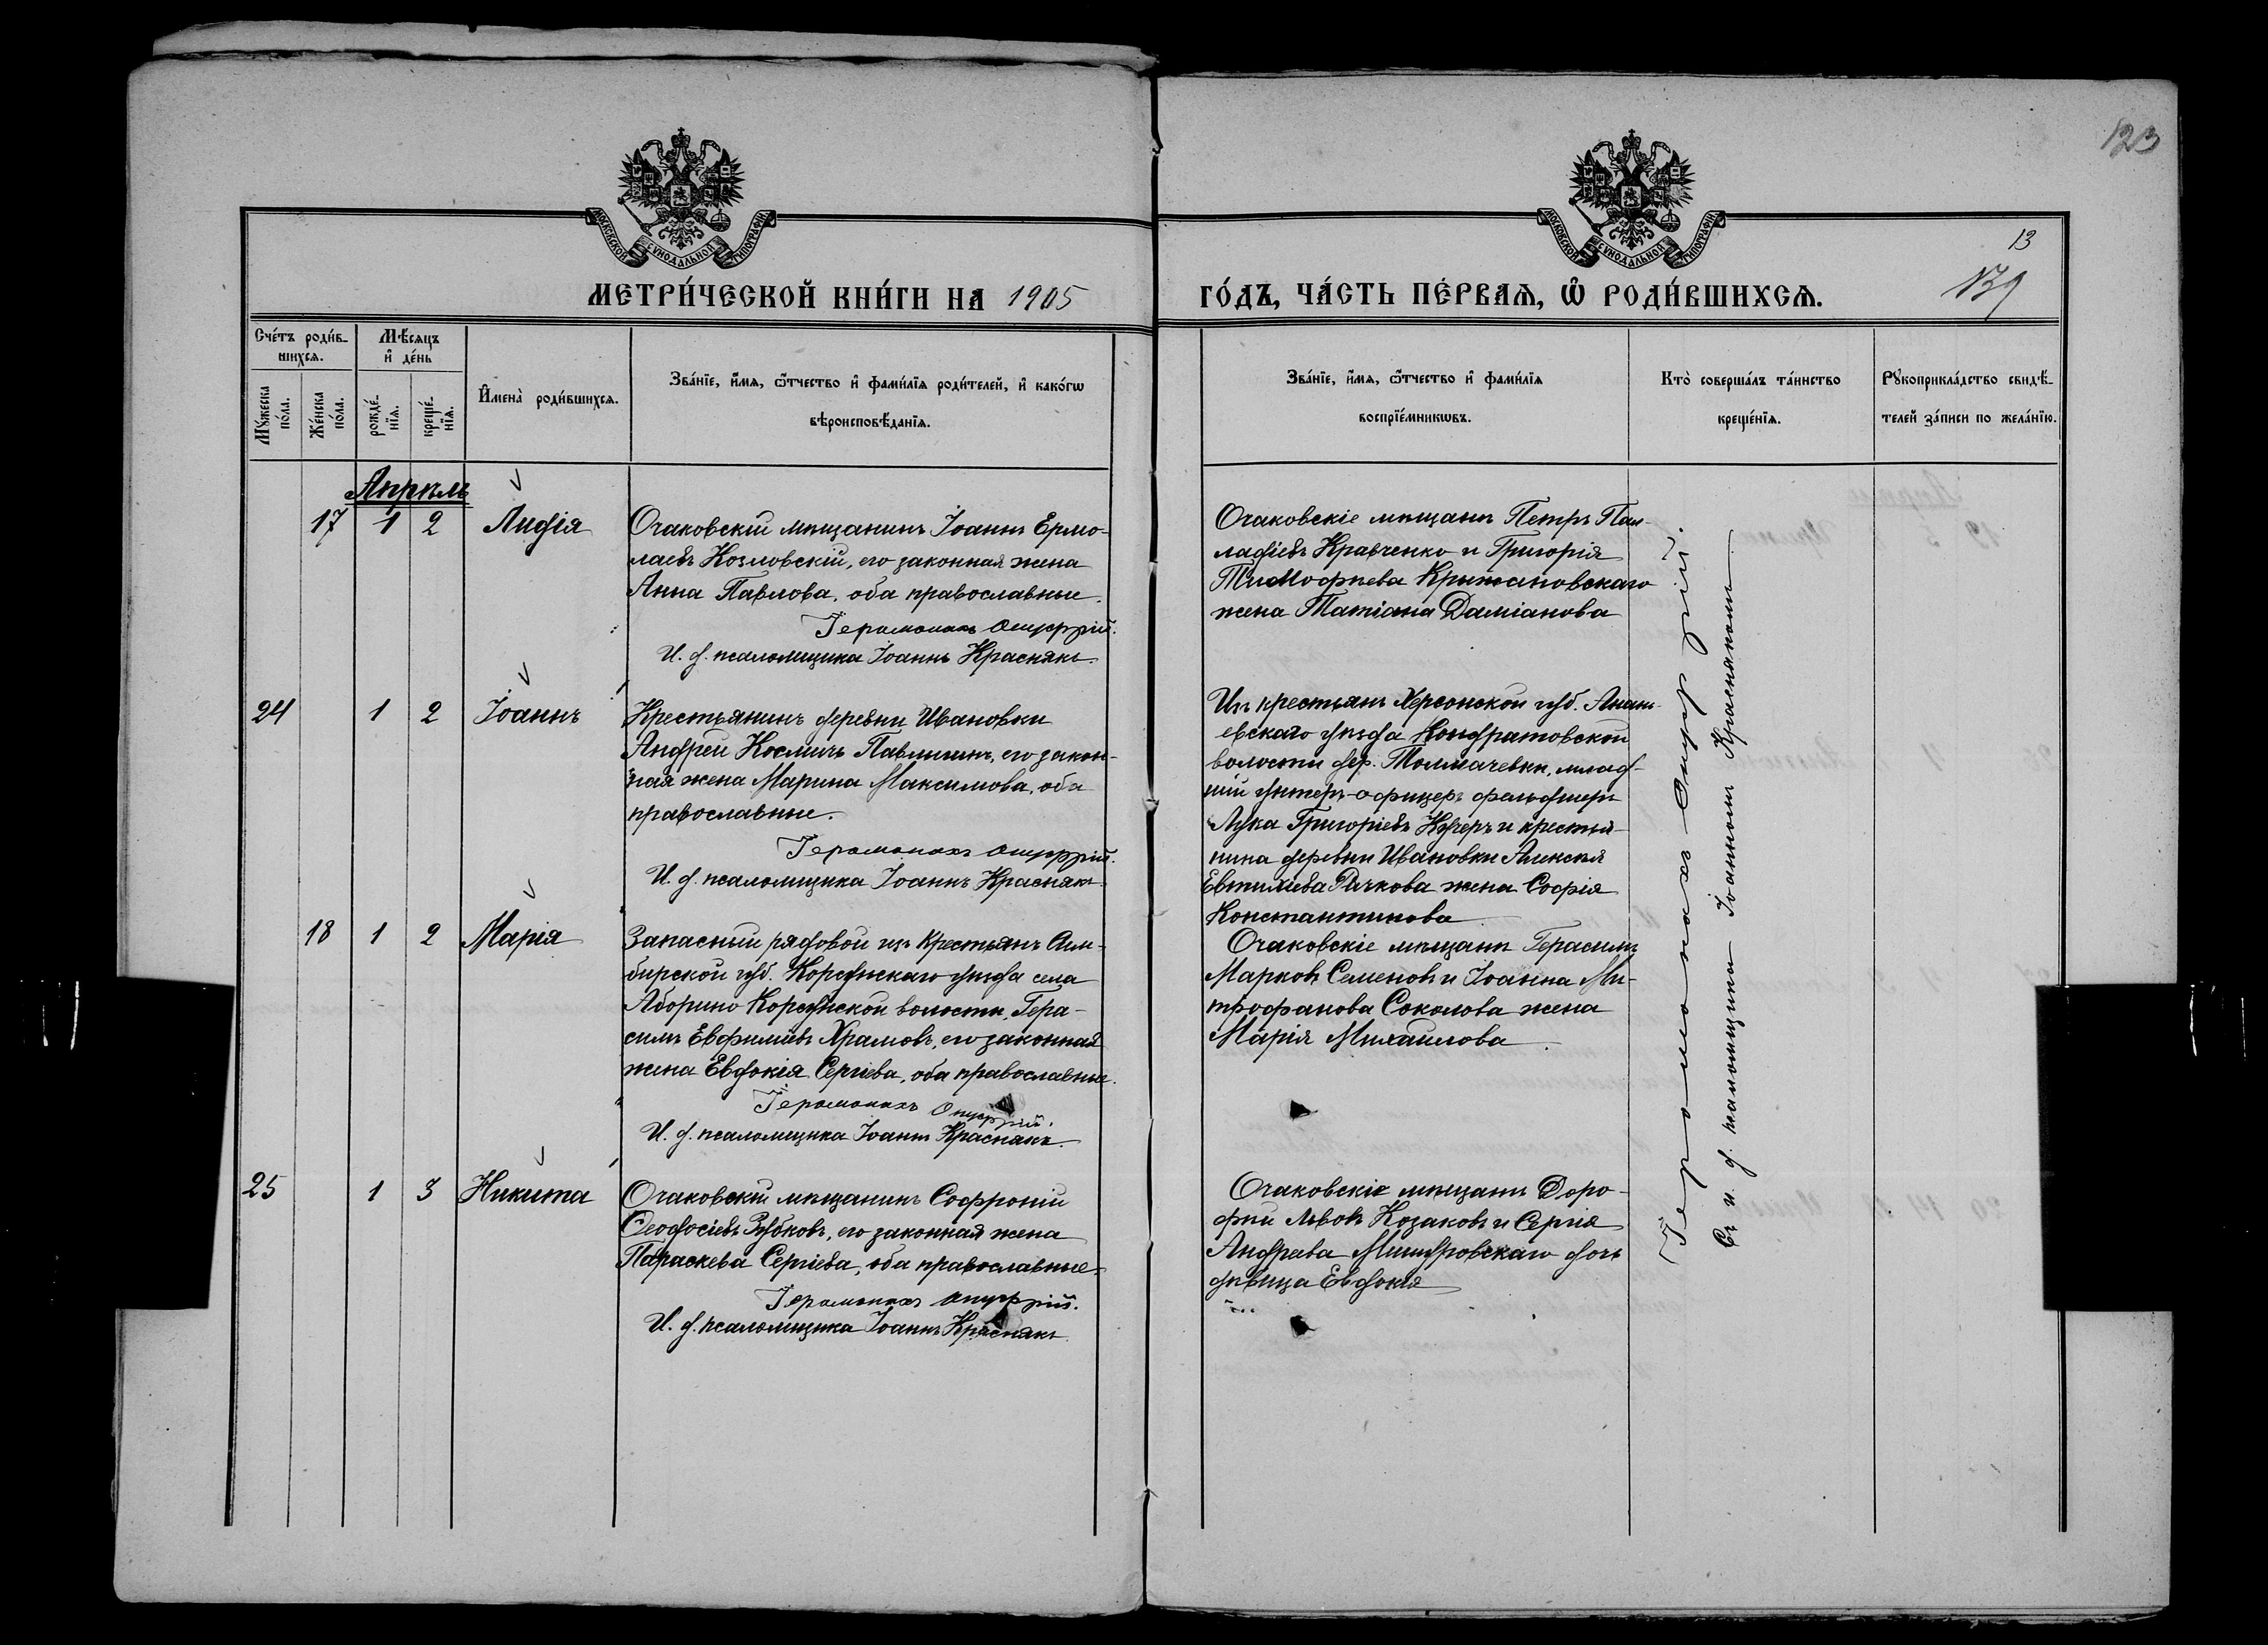 123
МОСКОВСКОЙ СѴНОДАЛЬНОЙ ТИПОГРАФІИ
МОСКОВСКОЙ СѴНОДАЛЬНОЙ ТИПОГРАФІИ
13
139
МЕТРИ́ЧЕСКОЙ КНИ́ГИ НА 1905
ГО́ДЪ, ЧА́СТЬ ПЕ́РВАѦ, Ѡ҆ РОДИ́ВШИХСѦ.
Сче́тъ роди́в-
шихсѧ.
Мѣ́сяцъ
и҆ де́нь
Мꙋ́жеска
по́ла.
Же́нска
по́ла.
рожде́-
нїѧ.
креще́-
нїѧ.
И҆мена̀ роди́вшихсѧ.
Зва́нїе, и҆́мѧ, ѻ҆́тчество и҆ фами́лїѧ роди́телей, и҆ како́гѡ
вѣроисповѣ́данїѧ.
Зва́нїе, и҆́мѧ, ѻ҆́тчество и҆ фами́лїѧ
воспрїе́мникѡвъ.
Кто̀ соверша́лъ та́инство
креще́нїѧ.
Рꙋкоприкла́дство свидѣ́-
телей за́писи по жела́нїю.
Апрѣль
17 1 2 Лидія
Очаковскій мѣщанинъ Іоаннъ Ермо-
лаевъ Козловскій, его законная жена
Анна Павлова, оба православные.
Іеромонахъ Онуфрій.
И. д. псаломщика Іоаннъ Краснякъ.
Очаковскіе мѣщане Петръ Пал-
ладіевъ Кравченко и Григорія
Тимофѣева Крыжановскаго
жена Татіана Даміанова
24 1 2 Іоаннъ
Крестьянинъ деревни Ивановки
Андрей Космичъ Павлишинъ, его закон-
ная жена Марина Максимова, оба
православные.
Іеромонахъ Онуфрій.
И. д. псаломщика Іоаннъ Краснякъ.
Изъ крестьянъ Херсонской губ. Анань-
евскаго уѣзда Кондратовской
волости дер. Толмачевки, млад-
шій унтеръ-офицеръ фельдшеръ
Лука Григоріевъ Кучеръ и крестья-
нина деревни Ивановки Алексія
Евтиміева Рачкова жена Софія
Константинова
18 1 2 Марія
Запасный рядовой изъ Крестьянъ Сим-
бирской губ. Корсунскаго уѣзда села
Аборино Корсунской волости, Гера-
симъ Евфиміевъ Храмовъ, его законная
жена Евдокія Сергіева, оба православные.
Іеромонахъ Онуфрій.
И. д. псаломщика Іоаннъ Краснякъ.
Очаковскіе мѣщане Герасимъ
Марковъ Семеновъ и Іоанна Ми-
трофанова Соколова жена
Марія Михаилова
25 1 3 Никита
Очаковскій мѣщанинъ Софроній
Ѳеодосіевъ Зубковъ, его законная жена
Параскева Сергіева, оба православные.
Іеромонахъ Онуфрій.
И. д. псаломщика Іоаннъ Краснякъ.
Очаковскіе мѣщане Доро-
фей Львовъ Козаковъ и Сергія
Андреева дочь
дѣвица Евдокія
Іеромонахъ Онуфрій.
Съ и. д. псаломщика Іоанномъ Краснякомъ